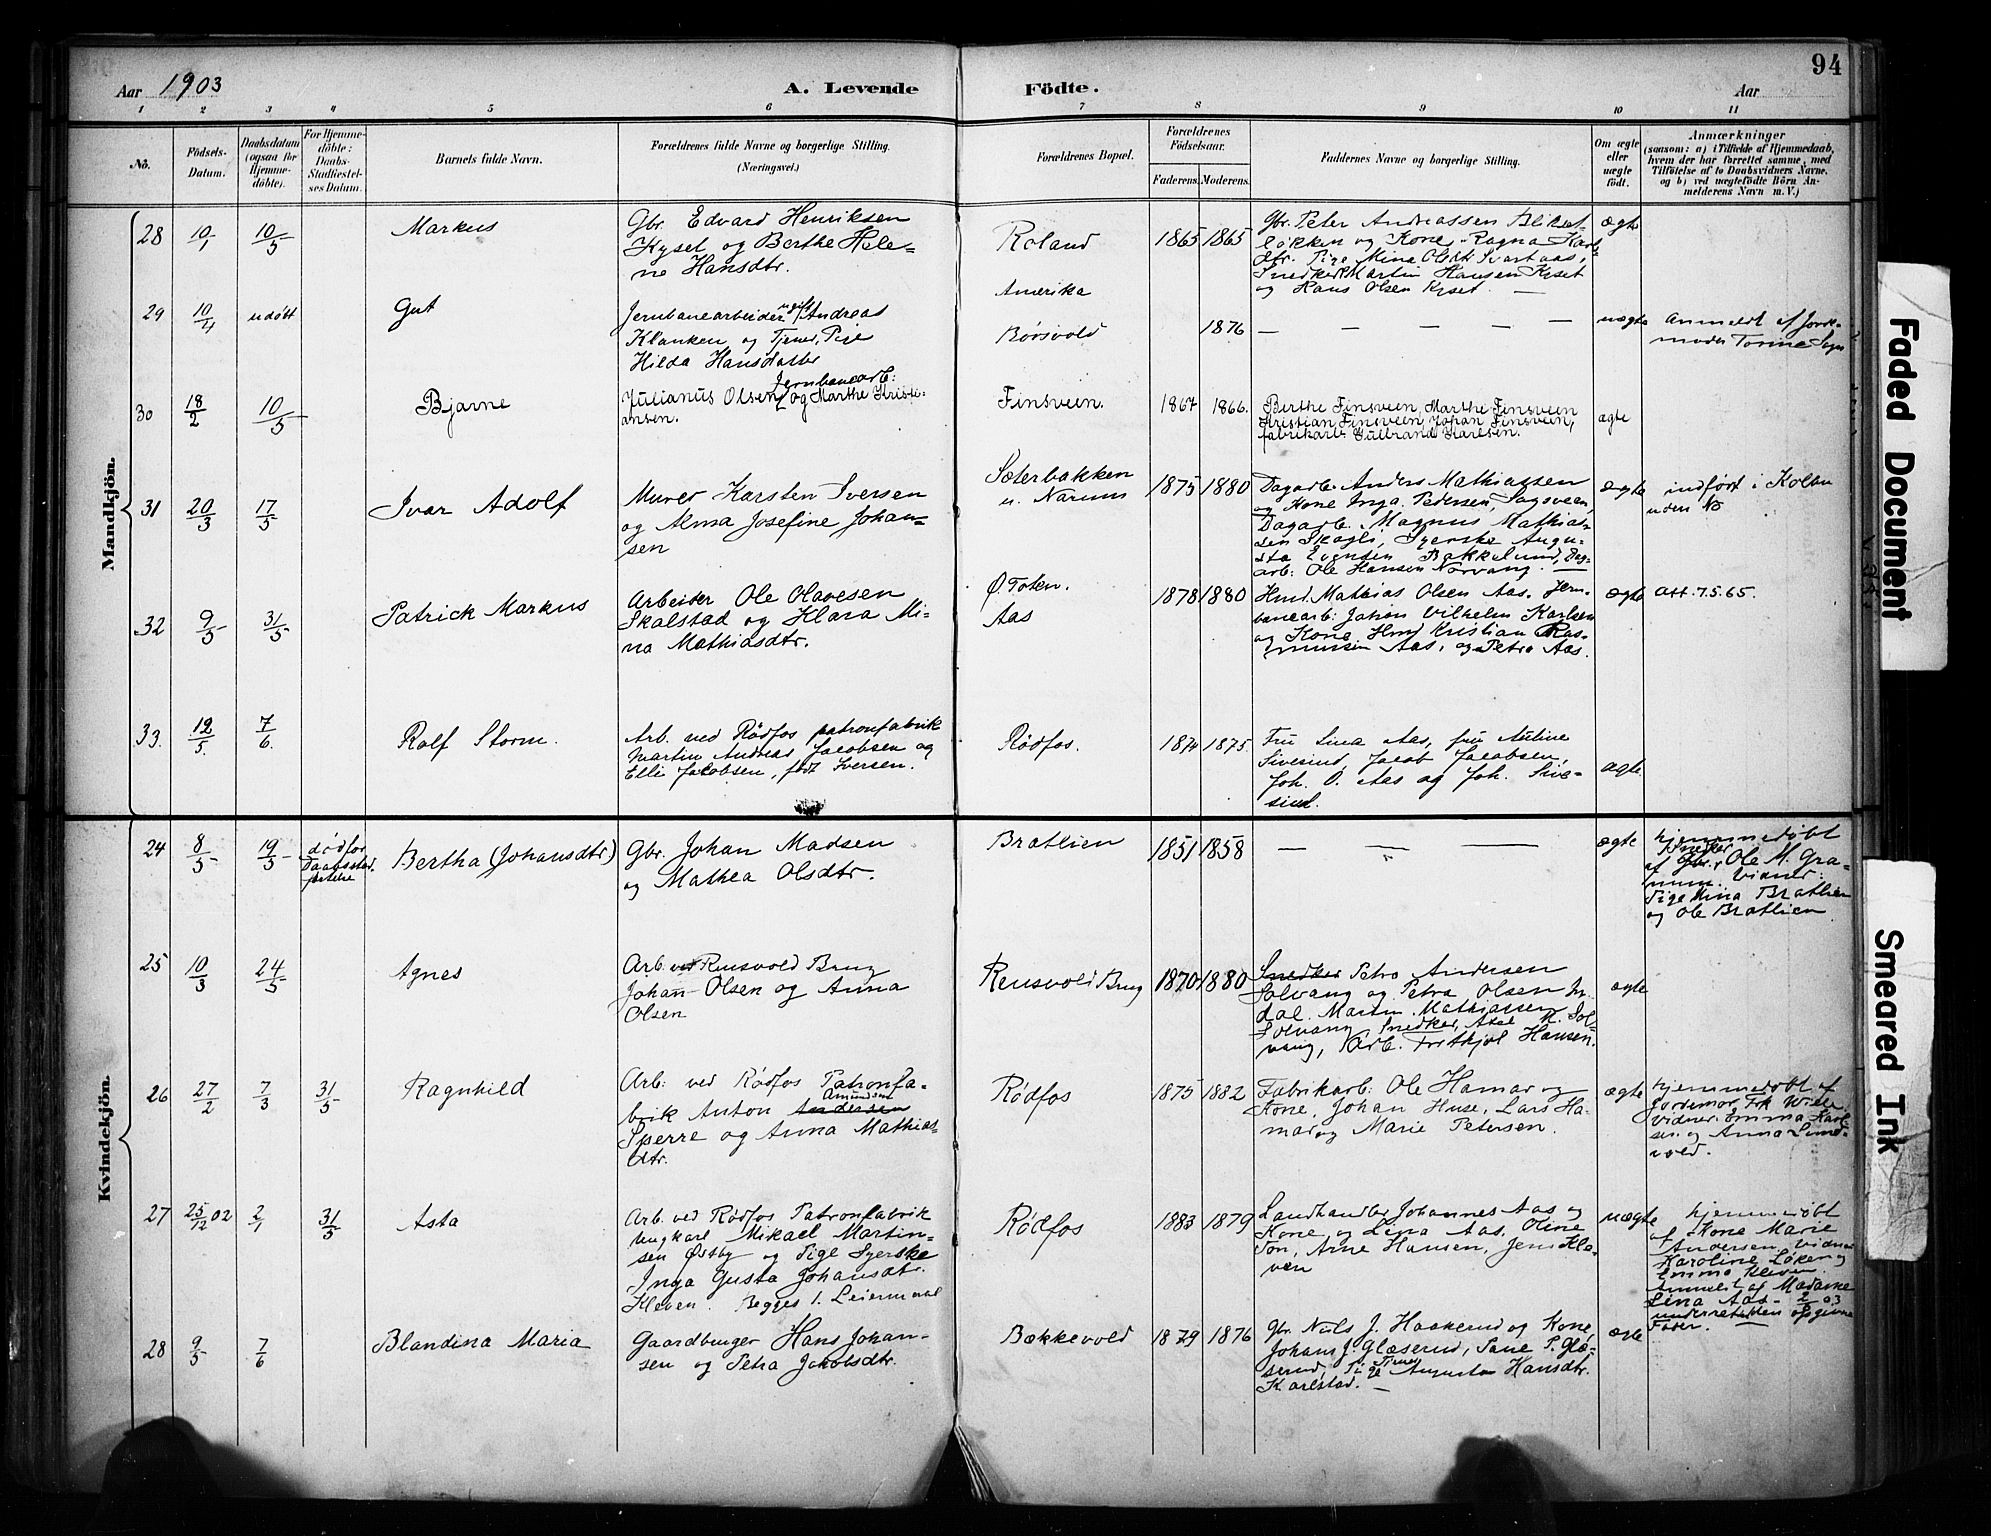 94
Aar 1903
A. Levende
Födte.
Aar
1 2 3 4 5 6 7 8 9 10 11
No.
Födsels-
Datum.
Daabsdatum
(ogsaa for
Hjemme-
döbte).
For Hjemme-
döbte:
Daabs-
Stadfæstel-
ses Datum.
Barnets fulde Navn.
Forældrenes fulde Navne og borgerlige Stilling.
(Næringsvei.)
Forældrenes Bopæl.
Forældrenes
Födselsaar.
Faderens. Moderens.
Faddernes Navne og borgerlige Stilling.
Om ægte
eller
uægte
födt.
Anmærkninger
(saasom: a) i Tilfælde af Hjemmedaab,
hvem der har forrettet samme, med
Tilföielse af to Daabsvidners Navne,
og b) ved uægtefödte Börn An-
melderens Navn m. V.)
Mandkjön.
28 10/1 10/5 Markus
Gbr. Edvard Henriksen
Kyset og Berthe Hele-
ne Hansdtr.
Roland
1865 1865
Gbr. Peter Andreassen Blikset-
løkken og Kone, Ragna Karls
dtr. Pige Mina Olsdtr Svartaas,
Snedker Martin Hansen Kyset
og Hans Olsen Kyset. —
ægte
29 10/4 udöbt Gut
Jernbanearbeider ugift Andreas
Klanken og Tjener, Pige
Hilda Hansdatter
Amerika
Börsvold
1876
— — — — —
uægte
Anmeldt af Jord-
moder Torine
30 18/2 10/5 Bjarne
Julianus Olsen Jernbanearb: og Marthe Kristi-
ansen.
Finsveen.
1867 1866.
Berthe Finsveen, Marthe Finsveen
Kristian Finsveen, Johan Finsveen,
fabrikarb. Gulbrand Karlsen.
ægte
31 20/3 17/5 Ivar Adolf
Murer Karsten Iversen
og Alma Josefine Johan-
sen
Sæterbakken
u. Narum
1875 1880
Dagarb. Anders Mathiassen
og Kone Inga Pedersen, Sagsveen,
Dagarb. Magnus Mathias-
sen Skogli, Syerske Augu-
sta Evensen Bakkelund, Dag-
arb: Ole Hansen Norvang.
ægte
indført i Kolbu
uden No
32 9/5 31/5 Patrick Markus
Arbeider Ole Olavesen
Skalstad og Klara Mi-
na Mathiasdtr.
Ø. Toten.
Aas
1878 1880
Hmd. Mathias Olsen Aas. Jern-
banearb: Johan Vilhelm Karlsen
og Kone, Hmd Kristian Ras-
mussen Aas, og Petra Aas.
ægte
Att. 7.5.65.
33. 12/5. 7/6. Rolf Storm.
Arb. ved Rödfos patronfabrik
Martin Andreas Jacobsen og
Elli Jacobsen, født Iversen.
Rödfos.
1874 1875.
Fru Lina Aas, fru Mutine
Sivesind, Jacob Jacobsen,
Joh. O. Aas og Joh. Sive-
sind.
ægte.
Kvindekjön.
24 8/5 19/5 död for
Daabsstad-
fæstelse
Bertha (Johansdtr)
Gbr. Johan Madsen
og Mathea Olsdtr.
Bratlien
1851 1858
— — —
ægte
hjemmedøbt
af Snedker Gbr. Ole M. Gra-
num. Vidner:
Pige Mina Bratlien
og Ole Bratlien.
25 10/3 24/5 Agnes
Arb. ved Reusvold Brug
Johan Olsen og Anna
Olsen
Reusvold Brug
1870 1880
Snedker Petro Andersen
Solvang og Petra Olsen
dal. Martin Mathiassen
Solvang, Snedker, Axel M. Sol-
vang, Arb. Fritkjol Hansen.
ægte
26 27/2 7/3 31/5 Ragnhild
Arb: ved Rödfos Patronfa-
brik Anton Andersen Amundsen
Sperre og Anna Mathias-
dtr.
Rödfos
1875 1882
Fabrikarb: Ole Hamar og
Kone, Johan Huse, Lars Ha-
mar og Marie Petersen.
ægte
hjemmedøbt af
Jordemor Frk Wiel.
Vidner: Emma Karl-
sen og Anna Lund-
vold.
27 25/12 02 2/1 31/5 Asta
Arb. ved Rödfos Patronfabrik
Ungkarl Mikael Martin-
sen Østby og Pige Syerske
Inga Gusta Johansdtr.
Kleven. Begges 1. Leiermaal
Rödfos
1883 1879
Landhandler Johannes Aas og
Kone, og Lina Aas, Oline
Ton, Arne Hansen, Jens Kle-
ven
uægte
hjemmedøbt
af Kone Marie
Andersen, Vidner
Karoline Løken og
Emma Kleven.
Anmeldt af Madame
Lina Aas 2/1 03
underretdden opgivne
Fader.
28 9/5 7/6 Blandina Maria
Gaardbruger Hans Johan-
sen og Petra Jakobsdtr.
Bækkevold
1879 1876
Gbr. Nils J. Haakerud og Kone,
Johans J. Glæserud, Sane P. Glæ-
serud, Pige Tjener Augusta Hansdtr.
Karlstad. —
ægte
Faded Document
Smeared Ink